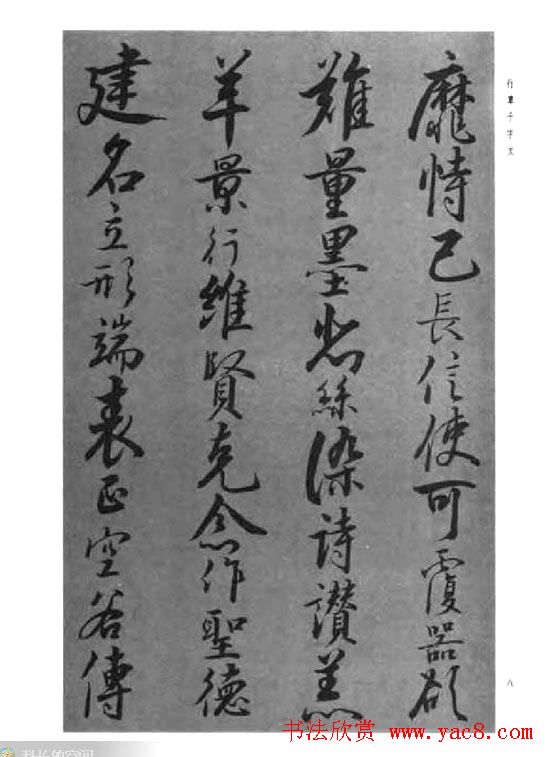 靡恃己長信使可覆器欲
難量墨悲絲染詩讚羔
羊景行維賢克念作聖德
建名立形端表正空谷傳
行草千字文
八
书法欣赏 www.yac8.com
科长的空间